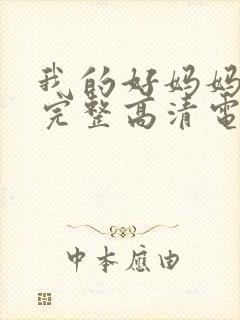 我的好妈妈
完整高清电
中本應由